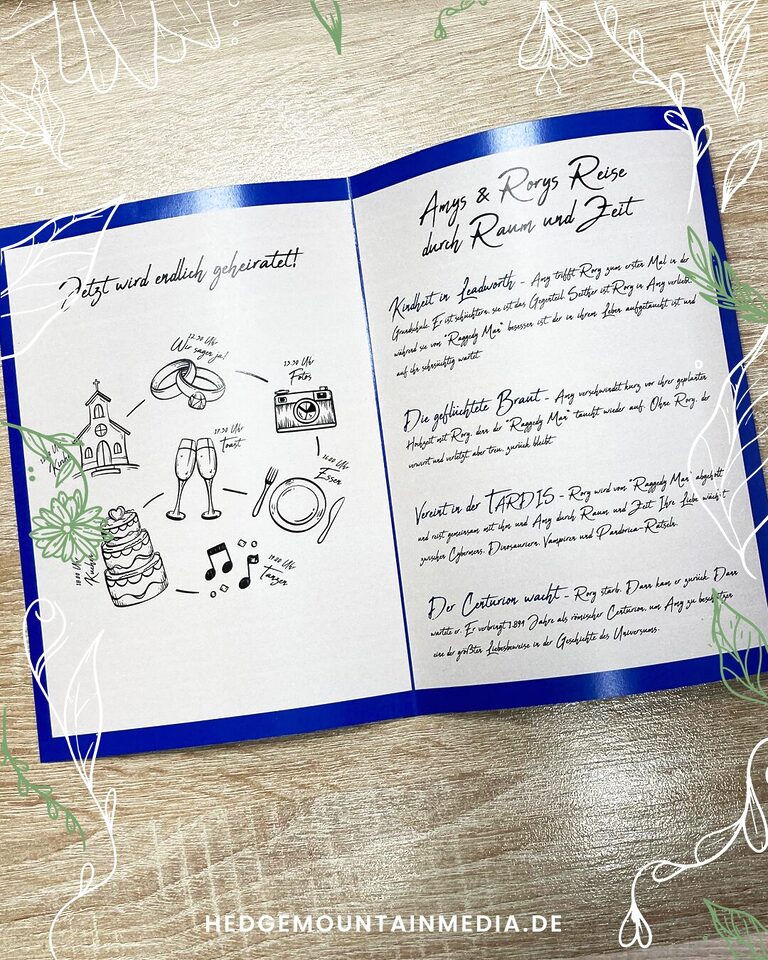 Jetzt wird endlich geheiratet!
12:30 Uhr
Wir sagen ja!
13:30 Uhr
Fotos
17:30 Uhr
Toast
Uhr
Essen
Uhr
Tanzen
Uhr
Kuchen
Amys & Rorys Reise
durch Raum und Zeit
Kindheit in Leadworth - Amy trifft Rory zum ersten Mal in der
Grundschule. Er ist schüchtern, sie ist das Gegenteil. Seither ist Rory in Amy verliebt,
während sie vom "Raggedy Man" besessen ist, der in ihrem Leben aufgetaucht ist und
auf ihn sehnsüchtig wartet.
Die geflüchtete Braut - Amy verschwindet kurz vor ihrer geplanten
Hochzeit mit Rory, denn der "Raggedy Man" taucht wieder auf. Ohne Rory, der
verwirrt und verletzt, aber treu, zurück bleibt.
Vereint in der TARDIS - Rory wird vom "Raggedy Man" abgeholt
und reist gemeinsam mit ihm und Amy durch Raum und Zeit. Ihre Liebe wächst
zwischen Cybermens, Dinosauriern, Vampiren und Pandorica-Rätseln.
Der Centurion wacht - Rory starb. Dann kam er zurück. Dann
wartete er. Er verbringt 1.894 Jahre als römischer Centurion, um Amy zu beschützen
eine der größten Liebesbeweise in der Geschichte des Universums.
HEDGEMOUNTAINMEDIA.DE